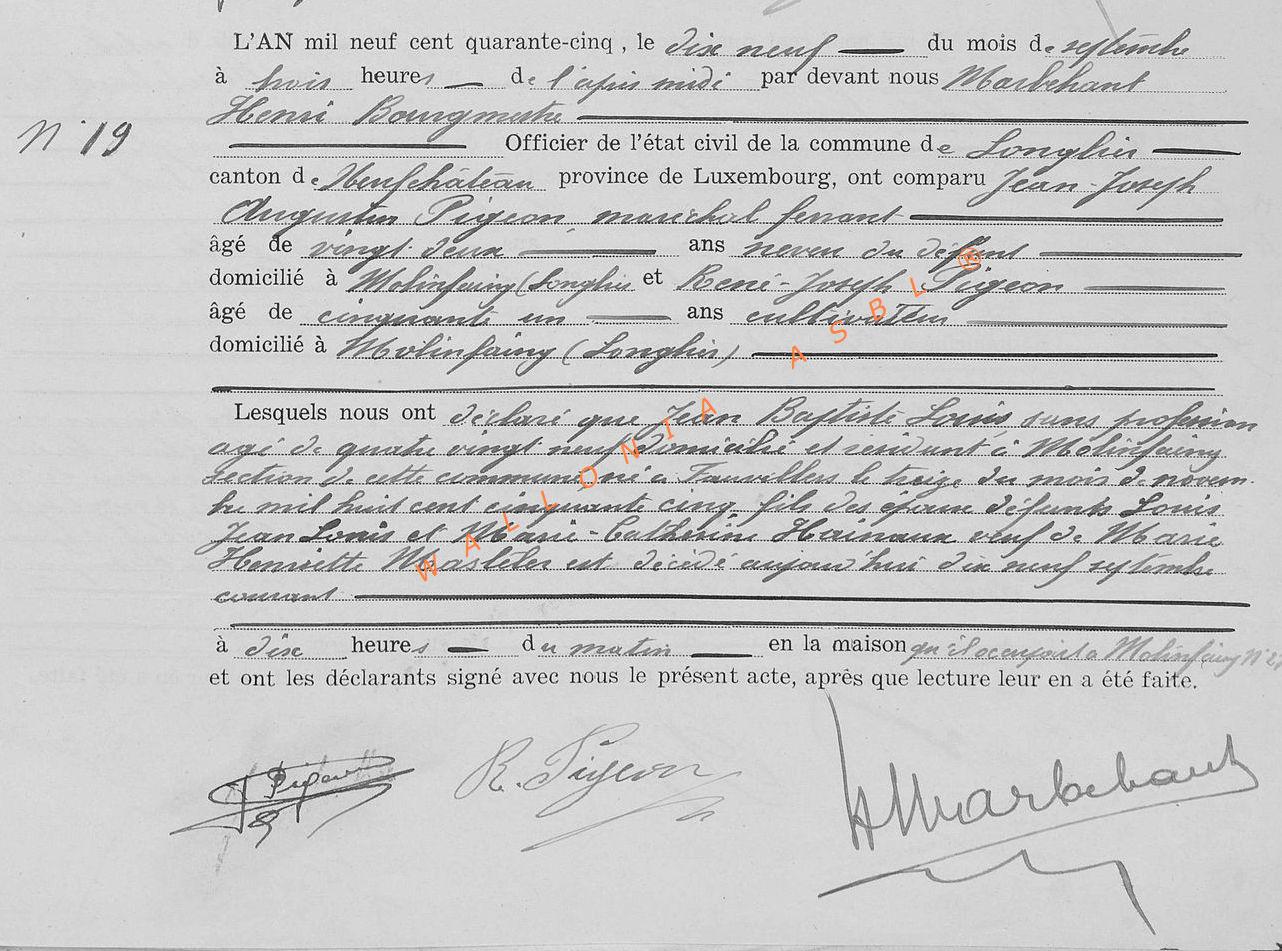 L'AN mil neuf cent quarante-cinq, le dix neuf du mois de septembre
à trois heures de l'après midi par devant nous Marbehant
Henri Bourgmestre
N° 19
Officier de l'état civil de la commune de Longlier
canton de Neufchâteau province de Luxembourg, ont comparu Jean-Joseph
Augustin Pigeon maréchal ferrant
âgé de vingt deux ans neveu du défunt
domicilié à Molinfaing (Longlier et René-Joseph Pigeon
âgé de cinquante un ans cultivateur
domicilié à Molinfaing (Longlier)
Lesquels nous ont déclaré que Jean Baptiste Louis sans profession
agé de quatre vingt neuf domicilié et résidant à Molinfaing
section de cette commune né à Fauvillers le treize du mois de novem-
bre mil huit cent cinquante cinq fils des époux défunts Louis
Jean Louis et Marie-Catherine Hainaux veuf de Marie
Henriette est décédé aujourd'hui dix neuf septembre
courant
à dix heures du matin en la maison qu'il occupait à Molinfaing N°
et ont les déclarants signé avec nous le présent acte, après que lecture leur en a été faite.
Pigeon R. Pigeon H Marbehant
WALLONIA ASBL ®